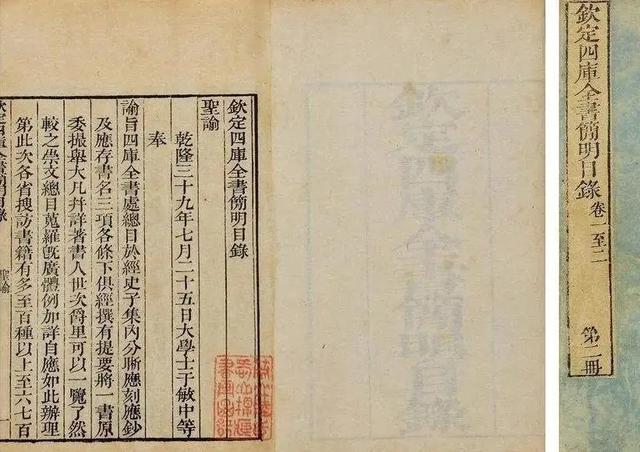 欽定四庫全書簡明目錄
卷一至二
第二冊
欽定四庫全書簡明目錄
欽定四庫全書簡明目錄
聖諭
乾隆三十九年七月二十五日大學士于敏中等
奉
諭旨四庫全書處總目於經史子集內分晰應刻應鈔
及應存書名三項各條下俱經撰有提要將一書原
委撮舉大凡幷詳著書人世次爵里可以一覽了然
較之崇文總目蒐羅旣廣體例加詳自應如此辦理
第此次各省搜訪書籍有多至百種以上至六七百
欽定四庫全書簡明目錄
聖諭